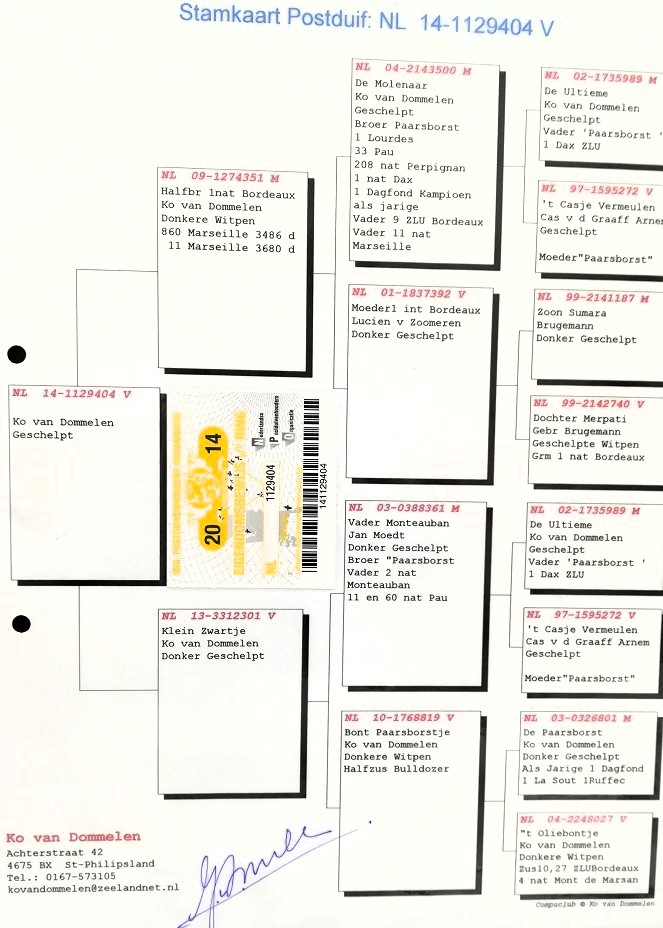 Stamkaart Postduif: NL 14-1129404 V
NL 14-1129404 V
Ko van Dommelen
Geschelpt
NL 09-1274351 M
Halfbr 1nat Bordeaux
Ko van Dommelen
Donkere Witpen
860 Marseille 3486 d
11 Marseille 3680 d
NL 13-3312301 V
Klein Zwartje
Ko van Dommelen
Donker Geschelpt
NL 04-2143500 M
De Molenaar
Ko van Dommelen
Geschelpt
Broer Paarsborst
1 Lourdes
33 Pau
208 nat Perpignan
1 nat Dax
1 Dagfond Kampioen
als jarige
Vader 9 ZLU Bordeaux
Vader 11 nat
Marseille
NL 01-1837392 V
Moeder1 int Bordeaux
Lucien v Zoomeren
Donker Geschelpt
NL 03-0388361 M
Vader Monteauban
Jan Moedt
Donker Geschelpt
Broer "Paarsborst
Vader 2 nat
Monteauban
11 en 60 nat Pau
NL 10-1768819 V
Bont Paarsborstje
Ko van Dommelen
Donkere Witpen
Halfzus Bulldozer
NL 02-1735989 M
De Ultieme
Ko van Dommelen
Geschelpt
Vader 'Paarsborst '
1 Dax ZLU
NL 97-1595272 V
't Casje Vermeulen
Cas v d Graaff Arnem
Geschelpt
Moeder"Paarsborst"
NL 99-2141187 M
Zoon Sumara
Brugemann
Donker Geschelpt
NL 99-2142740 V
Dochter Merpati
Gebr Brugemann
Geschelpte Witpen
Grm 1 nat Bordeaux
NL 02-1735989 M
De Ultieme
Ko van Dommelen
Geschelpt
Vader 'Paarsborst '
1 Dax ZLU
NL 97-1595272 V
't Casje Vermeulen
Cas v d Graaff Arnem
Geschelpt
Moeder"Paarsborst"
NL 03-0326801 M
De Paarsborst
Ko van Dommelen
Donker Geschelpt
Als Jarige 1 Dagfond
1 La Sout 1Ruffec
NL 04-2248027 V
"t Oliebontje
Ko van Dommelen
Donkere Witpen
Zus10,27 ZLUBordeaux
4 nat Mont de Marsan
20 14
Nederlandse
Postduivenhouders
Organisatie
NL 1129404
141129404
Ko van Dommelen
Achterstraat 42
4675 BX St-Philipsland
Tel.: 0167-573105
kovandommelen@zeelandnet.nl
Compuclub © Ko van Dommelen